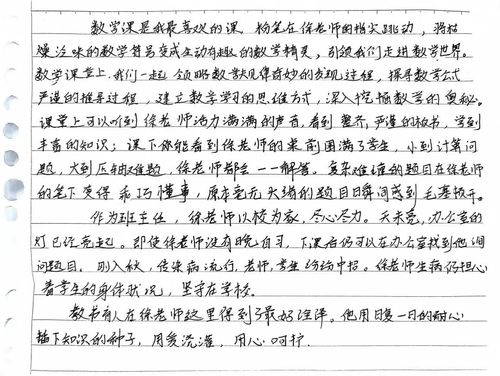 数学课是我最喜欢的课。粉笔在徐老师的指尖跳动，将枯
燥乏味的数学符号变成生动有趣的数学精灵，引领我们走进数学世界。
数学课堂上，我们一起领略数学奇妙的发现过程，探寻数学公式
严谨的推导过程，建立数学学习的思维方式，深入挖掘数学的奥秘。
课堂上可以听到徐老师活力满满的声音，看到整齐、严谨的板书，学到
丰富的知识；课下你能看到徐老师的桌前围满了学生，小到计算问
题，大到压轴难题，徐老师都会一一解答。复杂难缠的题目在徐老师
的笔下变得乖巧懂事，原本毫无头绪的题目瞬间感到毛塞顿开。
作为班主任，徐老师以校为家，尽心尽力。天未亮，办公室的
灯已经亮起。即使徐老师没有晚自习，下课后仍可以在办公室找到他询
问题目。刚入秋，传染病流行，老师、学生纷纷中招。徐老师生病仍担心
着学生的身体状况，坚守在学校。
教书育人在徐老师这里得到了最好诠释。他用日复一日的耐心
播下知识的种子，用爱浇灌，用心呵护。